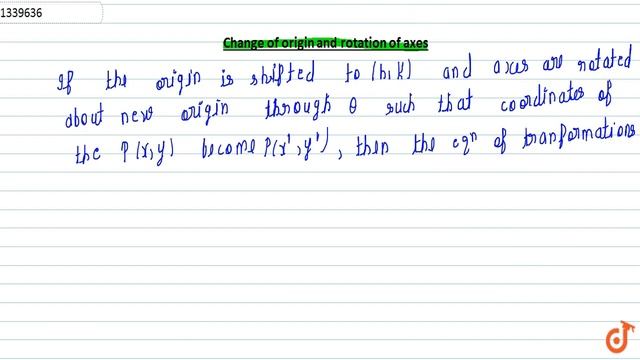 1339636
Change of origin and rotation of axes
If the origin is shifted to (h,k) and axes are rotated
about new origin through θ such that coordinates of
the P(x,y) become P(x',y'), then the eqn of tranformations